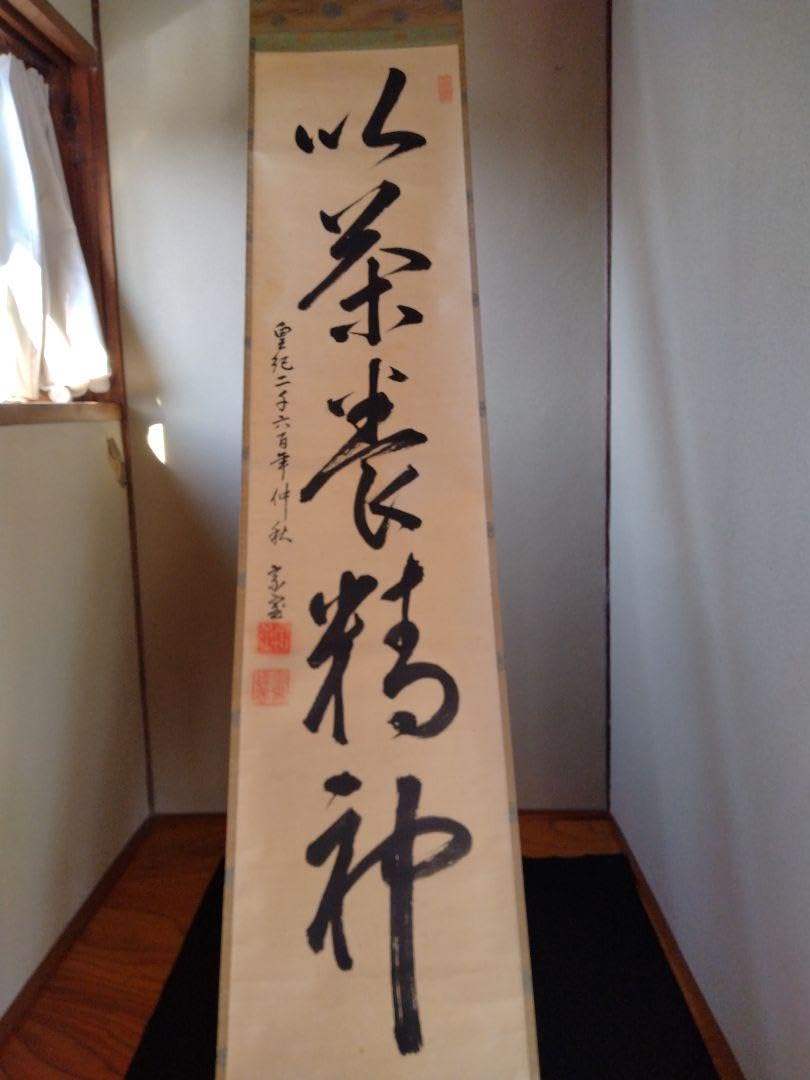 以茶養精神
皇紀二千六百年仲秋 宗室